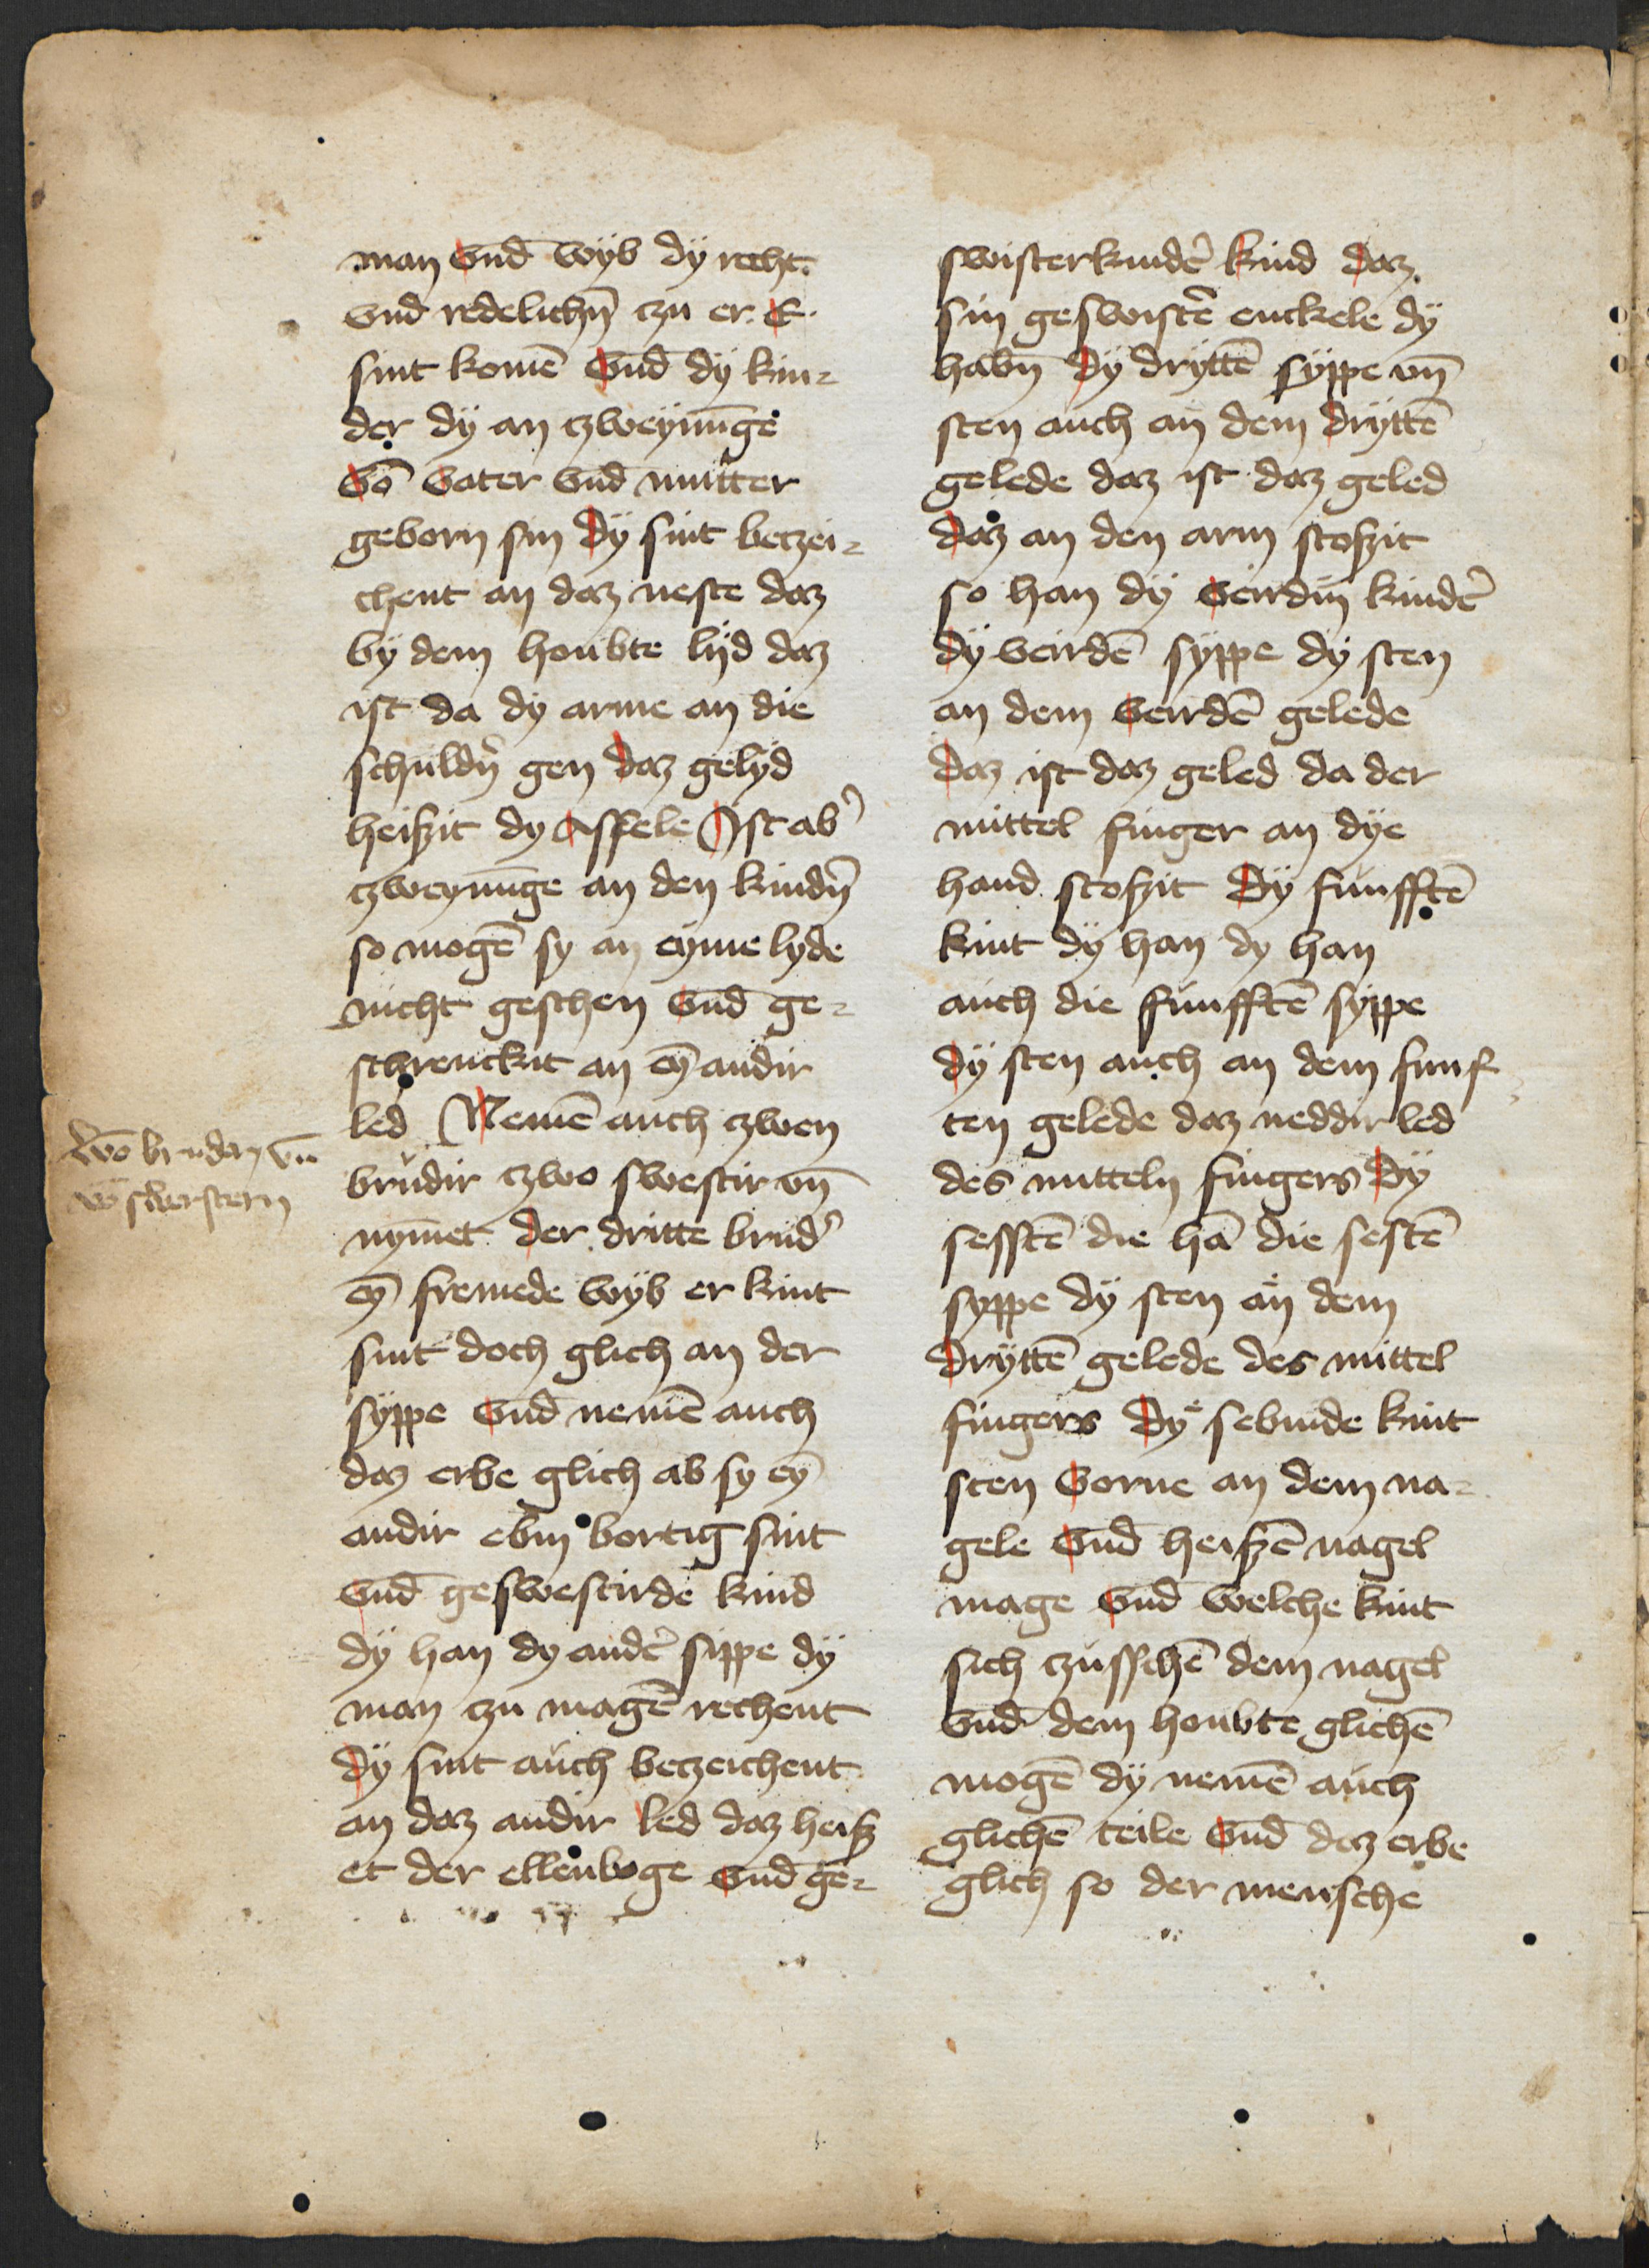 man vnd̄ wÿb dÿ recht
vnd redelichn̄ czu er E
sint komē vnd̄ dÿ kin-
der dÿ an czweyūnge
võ vater vnd̄ mutter
geborn sin dÿ sint beczei-
chent an daz neste daz
bÿ dem houbte lÿd daz
ist da dÿ arme an die
schuldn̄ gen daz gelÿd
heiszit dy Assele Ist ab̕
czweyūnge an den kindn̄
so mogē sy an eyme lyde
nicht geschen vnd̄ ge-
schrenckit an eȳ andir
led Nemē auch czwen
brudir czwo swestir vn̄
nym̄et der dritte brud̕
eȳ fremede wÿb er kint
sint doch glich an der
syppe vnd̄ nemē auch
daz erbe glich ab sy eȳ
andir ebin bortig sint
vnd̄ geswestirde kind
dÿ han dy ander̄ sippe dÿ
man czu magē rechent
dÿ sint auch beczeichent
an daz andir led daz heisz
et der ellenboge vnd̄ ge-
võ brudern vn̄
võ swerstern
swisterkinder̄ kind daz
sin geswister̄ enckele dÿ
habn̄ dÿ dryttē syppe vn̄
sten auch an dem dryttē
gelede daz ist daz geled
daz an den arm stoszit
so han dÿ veirdin kinder̄
dÿ veirdē syppe dÿ sten
an dem veirdē gelede
daz ist daz geled da der
mittel finger an dye
hand stoszit Dÿ funfftē
kint dÿ han dy han
auch die funfftē syppe
dÿ sten auch an dem funf
ten gelede daz neddir led
des mitteln fingers Dÿ
sefftē die hā die sestē
syppe dÿ sten an dem
dryttē gelede des mittel
fingers Dÿ sebinde kint
sten vorne an dem na-
gele vnd̄ heiszē nagel
mage vnd̄ welche kint
sich czusschē dem nagel
vnd̄ dem houbte glichē
mogē dÿ nemē auch
glichē teile vnd̄ daz erbe
glich so der mensche